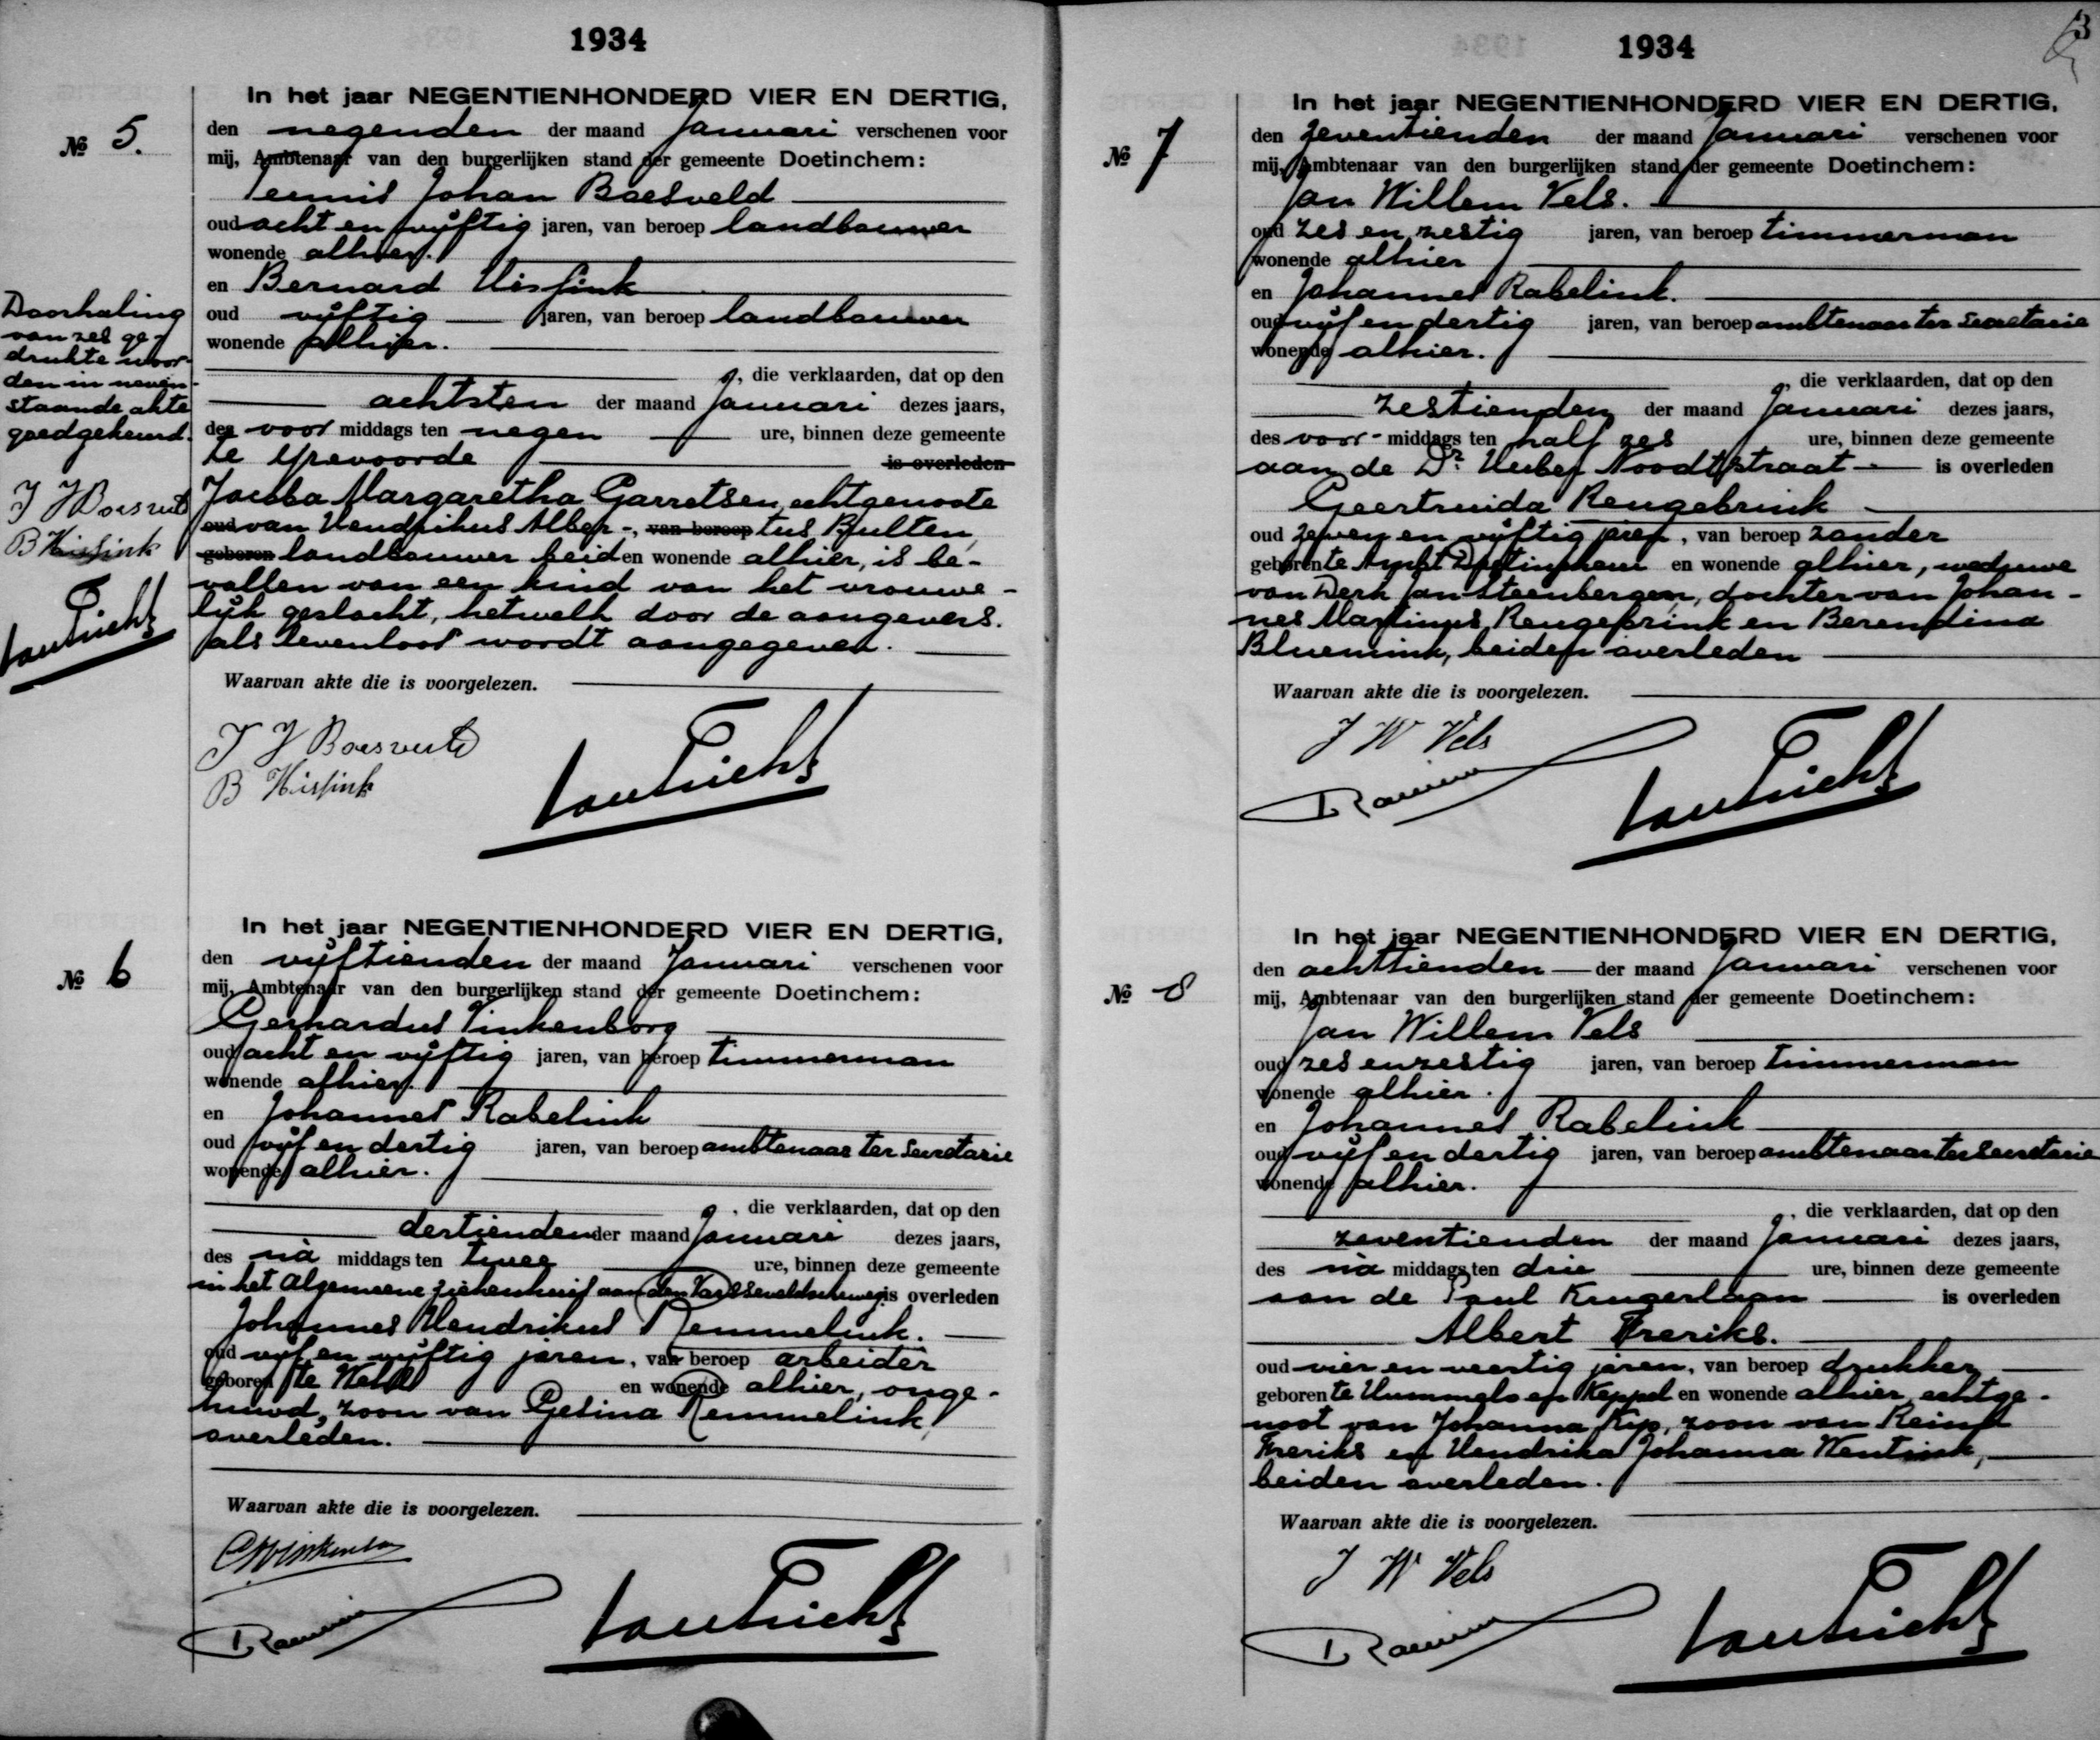 1934
In het jaar NEGENTIENHONDERD VIER EN DERTIG,
№ 5.
den negenden der maand Januari verschenen voor
mij, Ambtenaar van den burgerlijken stand der gemeente Doetinchem:
Teunis Johan Boesveld
oud acht en vijftig jaren, van beroep landbouwer
wonende alhier.
en Bernard Hissink
oud vijftig jaren, van beroep landbouwer
wonende alhier.
, die verklaarden, dat op den
achtsten der maand Januari dezes jaars,
des voor middags ten negen ure, binnen deze gemeente
te IJzevoorde is overleden
Jacoba Margaretha Garretsen, echtgenoote
oud van Hendrikus Alber-, van beroep tus Bulten,
geboren landbouwer beiden wonende alhier, is be-
vallen van een kind van het vrouwe-
lijk geslacht, hetwelk door de aangevers.
als levenloos wordt aangegeven.
Waarvan akte die is voorgelezen.
T J Boesveld
B Hissink
Doorhaling
van zes ge-
drukte woor-
den in neven-
staande akte
goedgekeurd.
T J Boesveld
B Hissink
In het jaar NEGENTIENHONDERD VIER EN DERTIG,
№ 6
den vijftienden der maand Januari verschenen voor
mij, Ambtenaar van den burgerlijken stand der gemeente Doetinchem:
Gerhardus Vinkenborg
oud acht en vijftig jaren, van beroep timmerman
wonende alhier.
en Johannes Rabelink
oud vijf en dertig jaren, van beroep ambtenaar ter secretarie
wonende alhier.
, die verklaarden, dat op den
dertienden der maand Januari dezes jaars,
des na middags ten twee ure, binnen deze gemeente
in het Algemeene ziekenhuis aan den Varsseveldscheweg is overleden
Johannes Hendrikus Remmelink.
oud vijf en vijftig jaren, van beroep arbeider
geboren te Wehl en wonende alhier, onge-
huwd, zoon van Gesina Remmelink,
overleden.
Waarvan akte die is voorgelezen.
1934
3
In het jaar NEGENTIENHONDERD VIER EN DERTIG,
№ 7
den zeventienden der maand Januari verschenen voor
mij, Ambtenaar van den burgerlijken stand der gemeente Doetinchem:
Jan Willem Vels.
oud zes en zestig jaren, van beroep timmerman
wonende alhier
en Johannes Rabelink.
oud vijf en dertig jaren, van beroep ambtenaar ter secretarie
wonende alhier.
, die verklaarden, dat op den
zestienden der maand Januari dezes jaars,
des voor- middags ten half zes ure, binnen deze gemeente
aan de Dr. Huber Noodtstraat is overleden
Geertruida Rengebrink
oud zeven en vijftig jaren, van beroep zonder
geboren te Ambt Doetinchem en wonende alhier, weduwe
van Derk Jan Steenbergen, dochter van Johan-
nes Martinus Rengebrink en Berendina
Bluemink, beiden overleden
Waarvan akte die is voorgelezen.
J W Vels
In het jaar NEGENTIENHONDERD VIER EN DERTIG,
№ 8
den achttienden der maand Januari verschenen voor
mij, Ambtenaar van den burgerlijken stand der gemeente Doetinchem:
Jan Willem Vels
oud zes en zestig jaren, van beroep timmerman
wonende alhier.
en Johannes Rabelink
oud vijf en dertig jaren, van beroep ambtenaar ter secretarie
wonende alhier.
, die verklaarden, dat op den
zeventienden der maand Januari dezes jaars,
des na middags ten drie ure, binnen deze gemeente
aan de Paul Krugerlaan is overleden
Albert Freriks.
oud vier en veertig jaren, van beroep drukker
geboren te Hummelo en Keppel en wonende alhier, echtge-
noot van Johanna Kip, zoon van Reind
Freriks en Hendrika Johanna Wentink,
beiden overleden.
Waarvan akte die is voorgelezen.
J W Vels